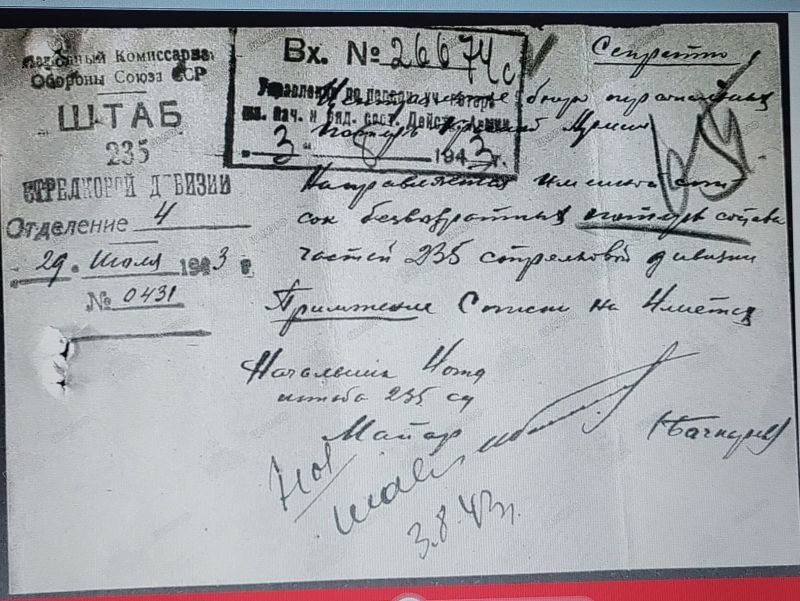 Народный Комиссариат
Обороны Союза ССР
ШТАБ
235
СТРЕЛКОВОЙ ДИВИЗИИ
Отделение 4
"29" Июля 1943 г.
№ 0431
Вх. № 26674с
Управление по персон. уч. потерь
мл. нач. и ряд. сост. Действ. Армии
"3" 8 1943 г.
Секретно
бюро персональных
потерь Красной Армии
Направляется именной спи
сок безвозвратных потерь состава
частей 235 стрелковой дивизии
Приложение Списки на листах
Начальник 4 отд
штаба 235 сд
Майор
3.8.43 г.